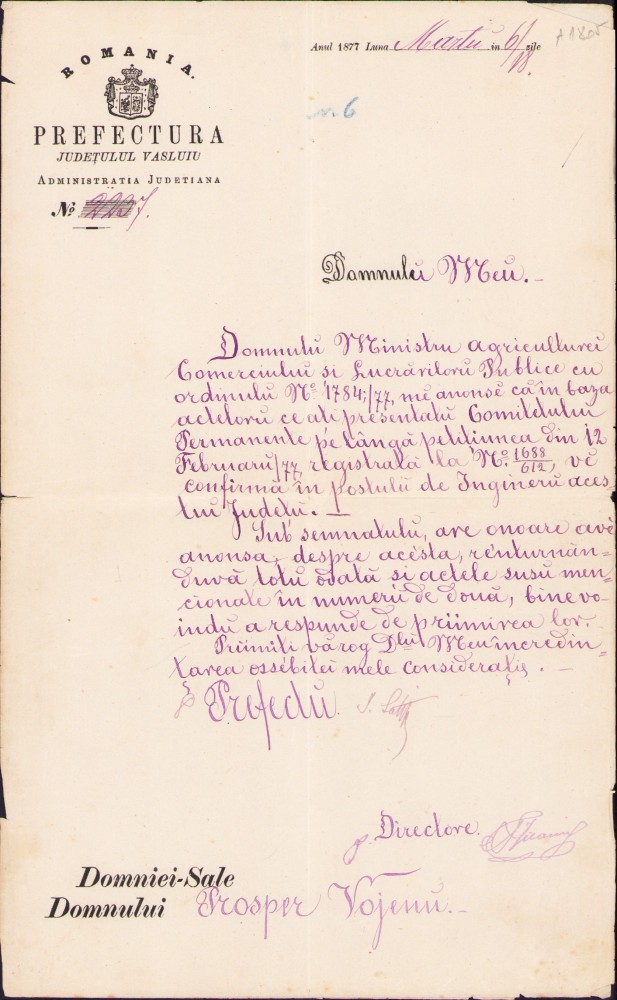 ROMANIA.
PREFECTURA
JUDEȚULUL VASLUIU
ADMINISTRATIA JUDETIANA
No 2237.
Anul 1877 Luna Martiu in 6/18 zile
n. 6
Domnului Meu.-
Domnulu Ministru agriculturei
Comerciului si Lucrăriloru Publice cu
ordinulu No 1784,/77, mĕ anonsĕ că în baza
acteloru ce ati presentatu Comitetului
Permanente pe lângă petitiunea din 12
Februaru/77, registrată la No. 1688/612, vĕ
confirmă în postulu de Ingineru aces
tui Judetu. -
Sub semnatulu, are onoare avĕ
anonsa, despre acésta, renturnân=
duvă totu odată si actele susu men=
cionate în numeru de două, binevo-
indu a respunde de priimirea lor.
Priimiti vărog Dlui Meu incredin=
tarea ossĕbitei mele consideraţie. -
p Prefectu.
p. Directore.
Domniei-Sale
Domnului Prosper Vojenu.-